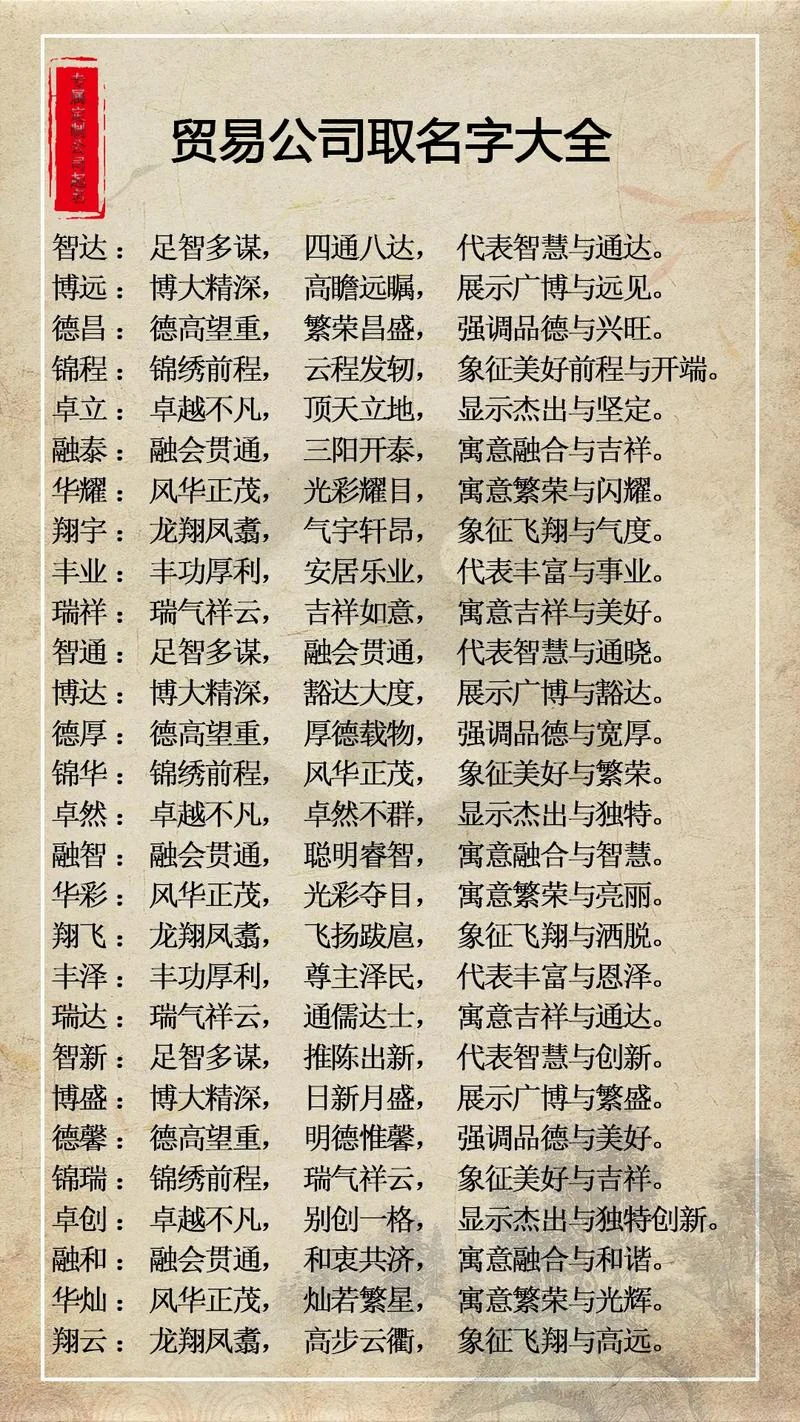 贸易公司取名字大全
智达：足智多谋，四通八达，代表智慧与通达。
博远：博大精深，高瞻远瞩，展示广博与远见。
德昌：德高望重，繁荣昌盛，强调品德与兴旺。
锦程：锦绣前程，云程发轫，象征美好前程与开端。
卓立：卓越不凡，顶天立地，显示杰出与坚定。
融泰：融会贯通，三阳开泰，寓意融合与吉祥。
华耀：风华正茂，光彩耀目，寓意繁荣与闪耀。
翔宇：龙翔凤翥，气宇轩昂，象征飞翔与气度。
丰业：丰功厚利，安居乐业，代表丰富与事业。
瑞祥：瑞气祥云，吉祥如意，寓意吉祥与美好。
智通：足智多谋，融会贯通，代表智慧与通晓。
博达：博大精深，豁达大度，展示广博与豁达。
德厚：德高望重，厚德载物，强调品德与宽厚。
锦华：锦绣前程，风华正茂，象征美好与繁荣。
卓然：卓越不凡，卓然不群，显示杰出与独特。
融智：融会贯通，聪明睿智，寓意融合与智慧。
华彩：风华正茂，光彩夺目，寓意繁荣与亮丽。
翔飞：龙翔凤翥，飞扬跋扈，象征飞翔与洒脱。
丰泽：丰功厚利，尊主泽民，代表丰富与恩泽。
瑞达：瑞气祥云，通儒达士，寓意吉祥与通达。
智新：足智多谋，推陈出新，代表智慧与创新。
博盛：博大精深，日新月盛，展示广博与繁盛。
德馨：德高望重，明德惟馨，强调品德与美好。
锦瑞：锦绣前程，瑞气祥云，象征美好与吉祥。
卓创：卓越不凡，别创一格，显示杰出与独特创新。
融和：融会贯通，和衷共济，寓意融合与和谐。
华灿：风华正茂，灿若繁星，寓意繁荣与光辉。
翔云：龙翔凤翥，高步云衢，象征飞翔与高远。